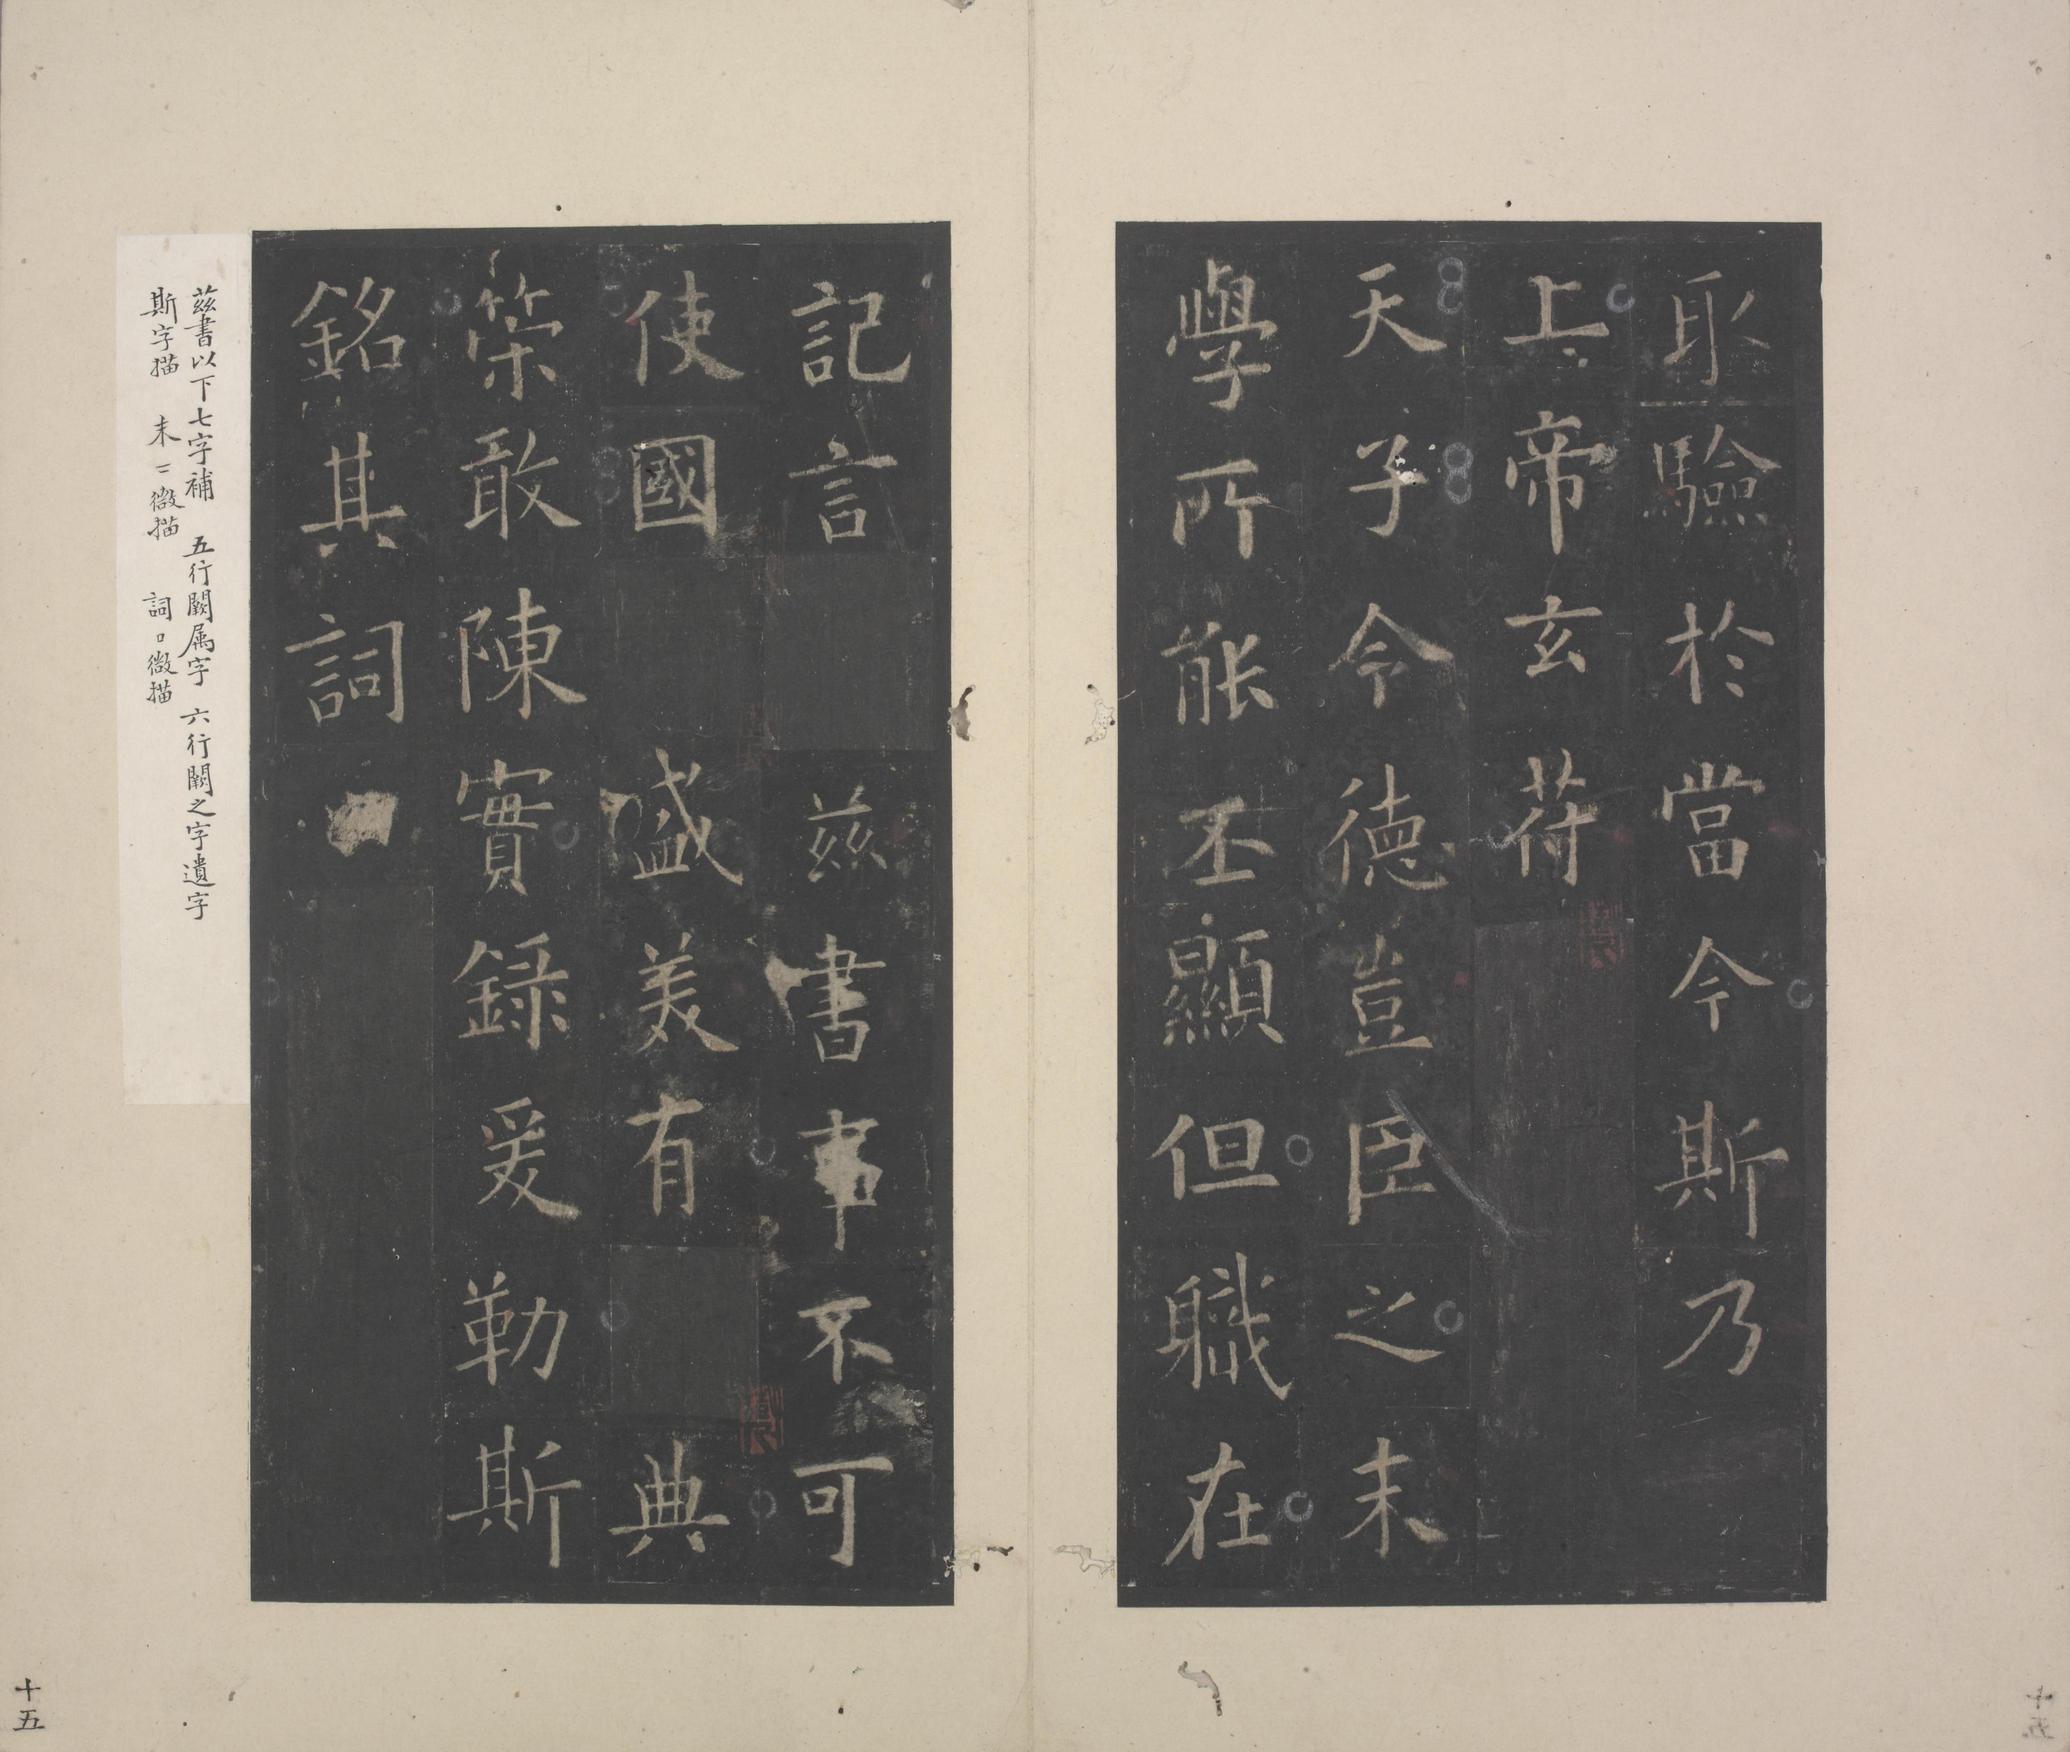 取驗於當今斯乃
上帝玄符
天子令德豈臣之末
學所能丕顯但職在
記言
茲書事不可
使國
盛美有
典
策敢陳實錄爰勒斯
銘其詞
曰
茲書以下七字補 五行闕属字 六行闕之字遺字
斯字描 末二微描 詞口微描
十五